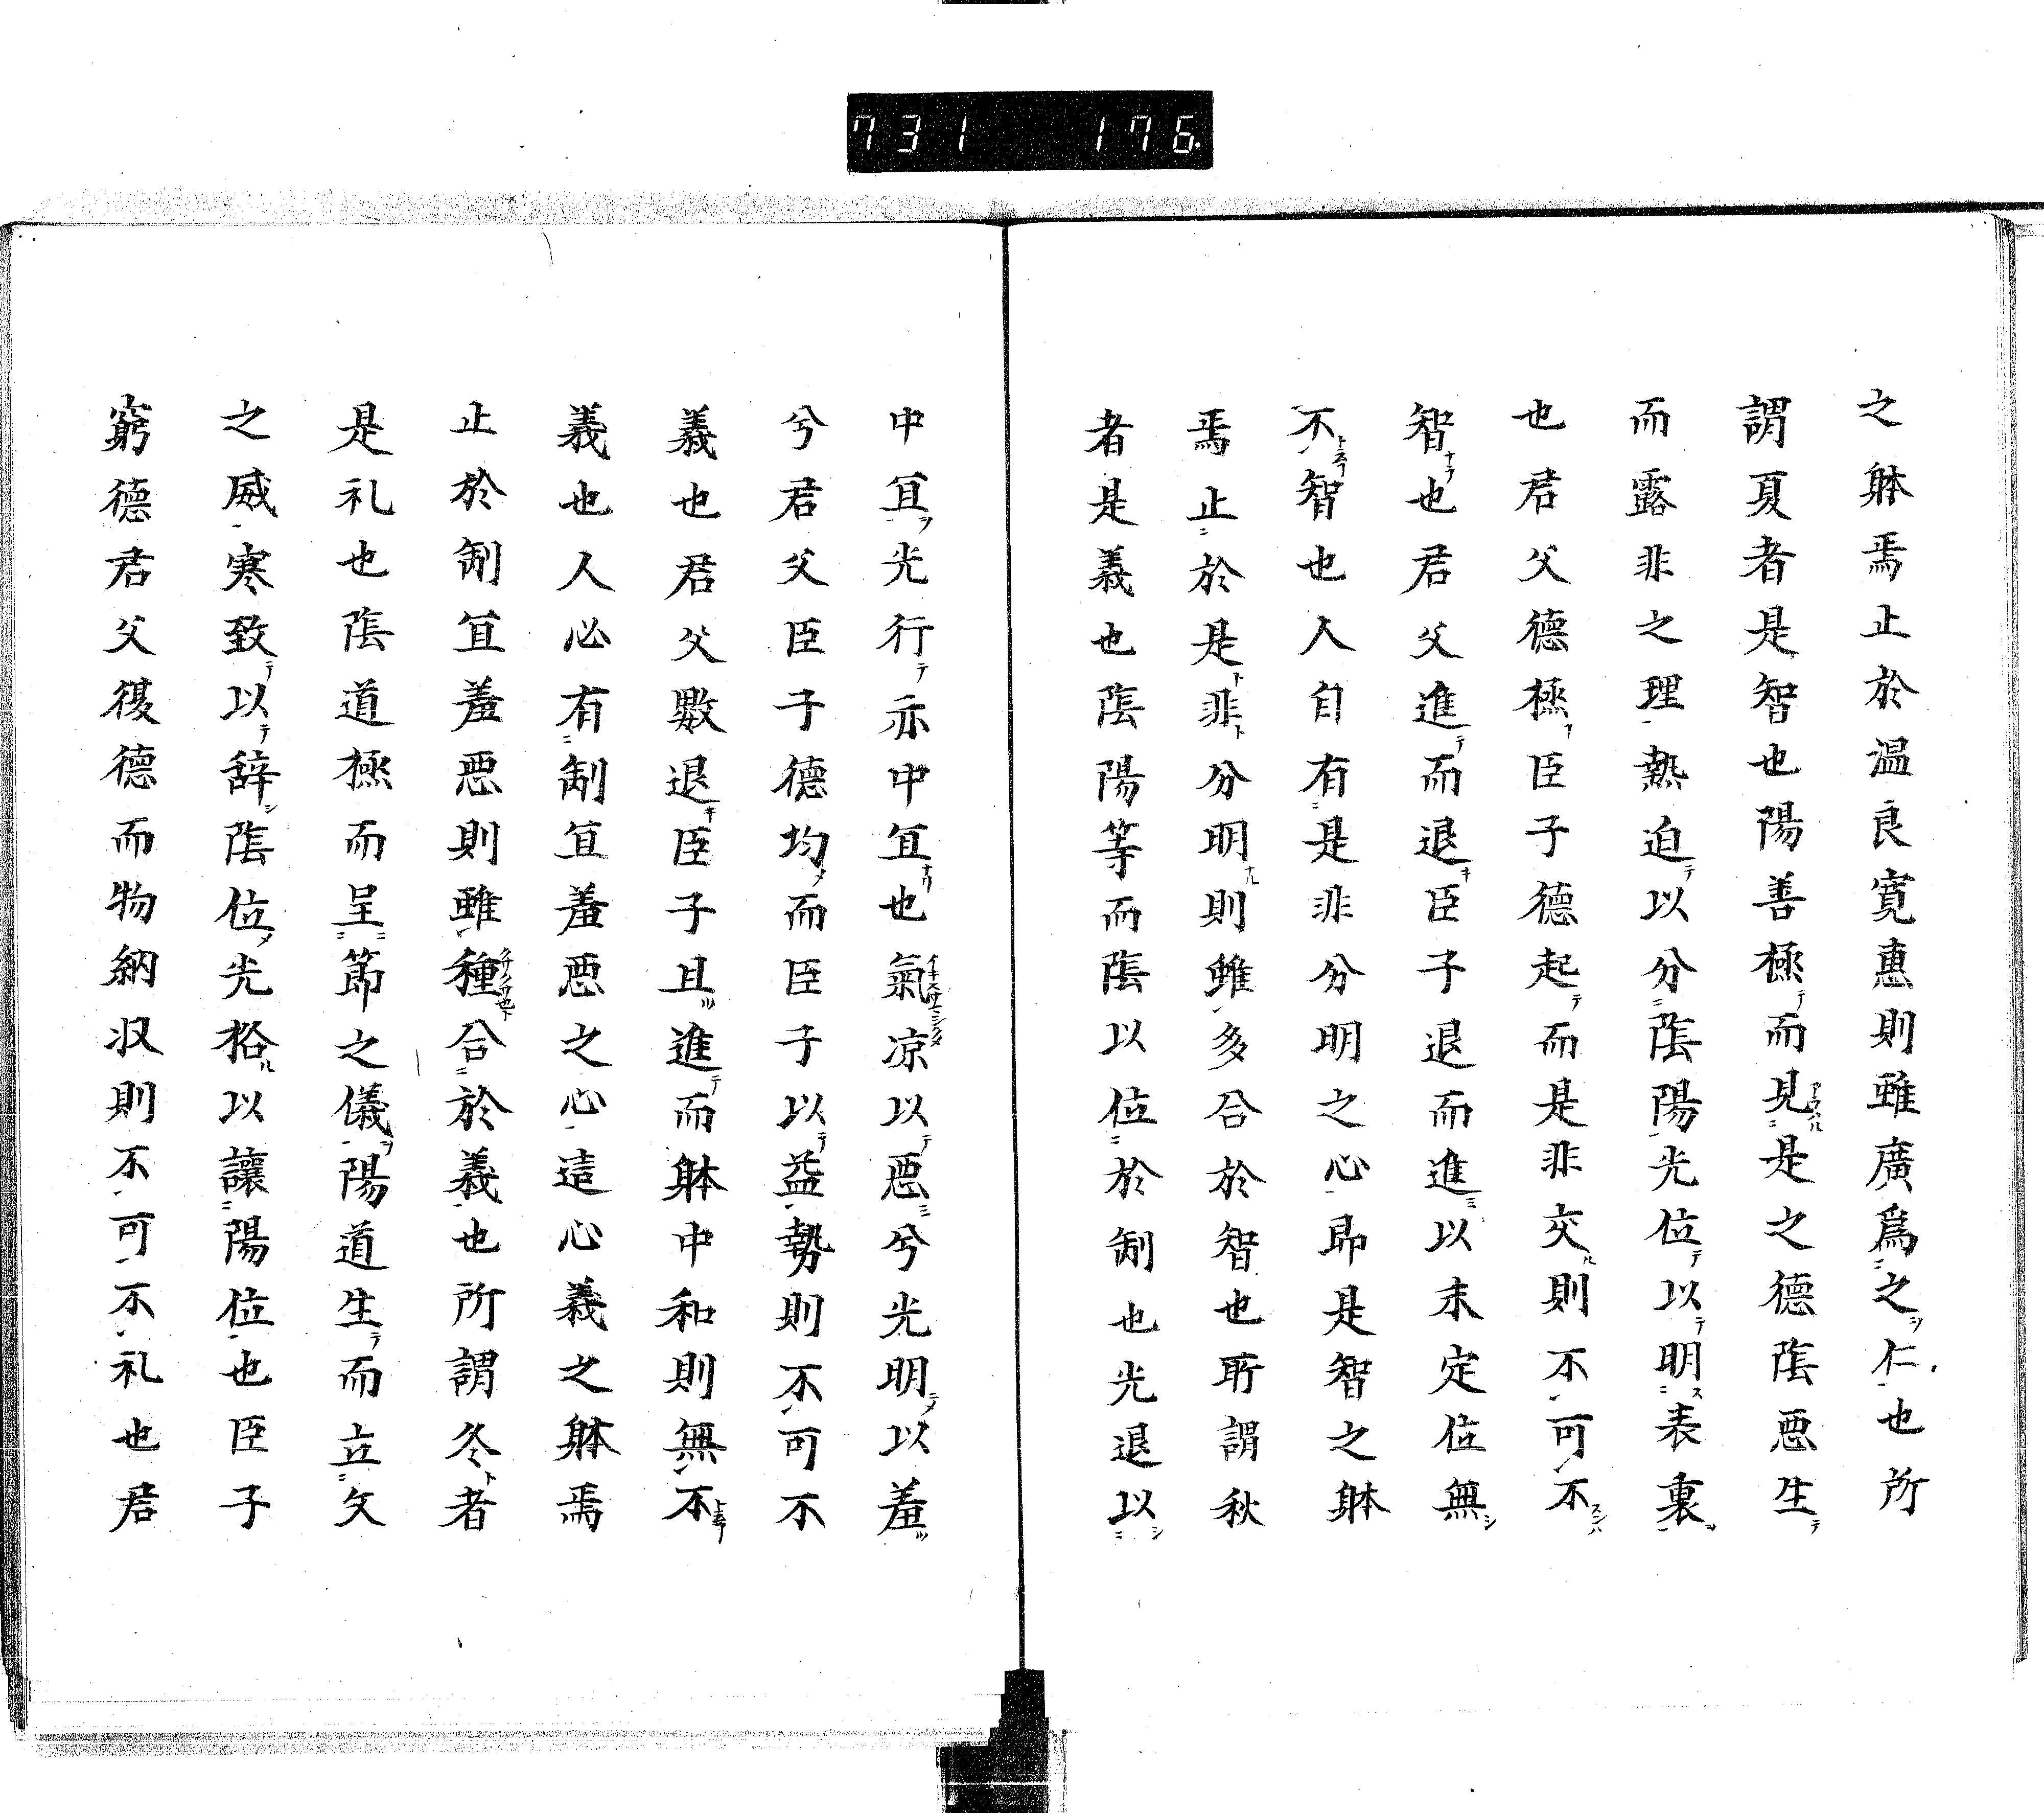 731 176
之躰焉止於温良寛惠則雖廣爲之仁也所
謂夏者是智也陽善極而見是之德隂悪生
而露非之理熱迫以分隂陽光位以明表裏
也君父德極臣子德起而是非交則不可不
智也君父進而退臣子退而進以未定位無
不智也人自有是非分明之心即是智之躰
焉止於是非分明則雖多合於智也所謂秋
者是義也隂陽等而隂以位於制也光退以
中冝光行示中冝也氣凉以悪兮光明以羞
兮君父臣子德均而臣子以益勢則不可不
義也君父數退臣子且進而躰中和則無不
義也人必有制冝羞悪之心這心義之躰焉
止於制冝羞悪則雖種合於義也所謂冬者
是礼也隂道極而呈節之儀陽道生而立文
之威寒致以辞隂位光格以讓陽位也臣子
窮德君父復德而物納収則不可不礼也君